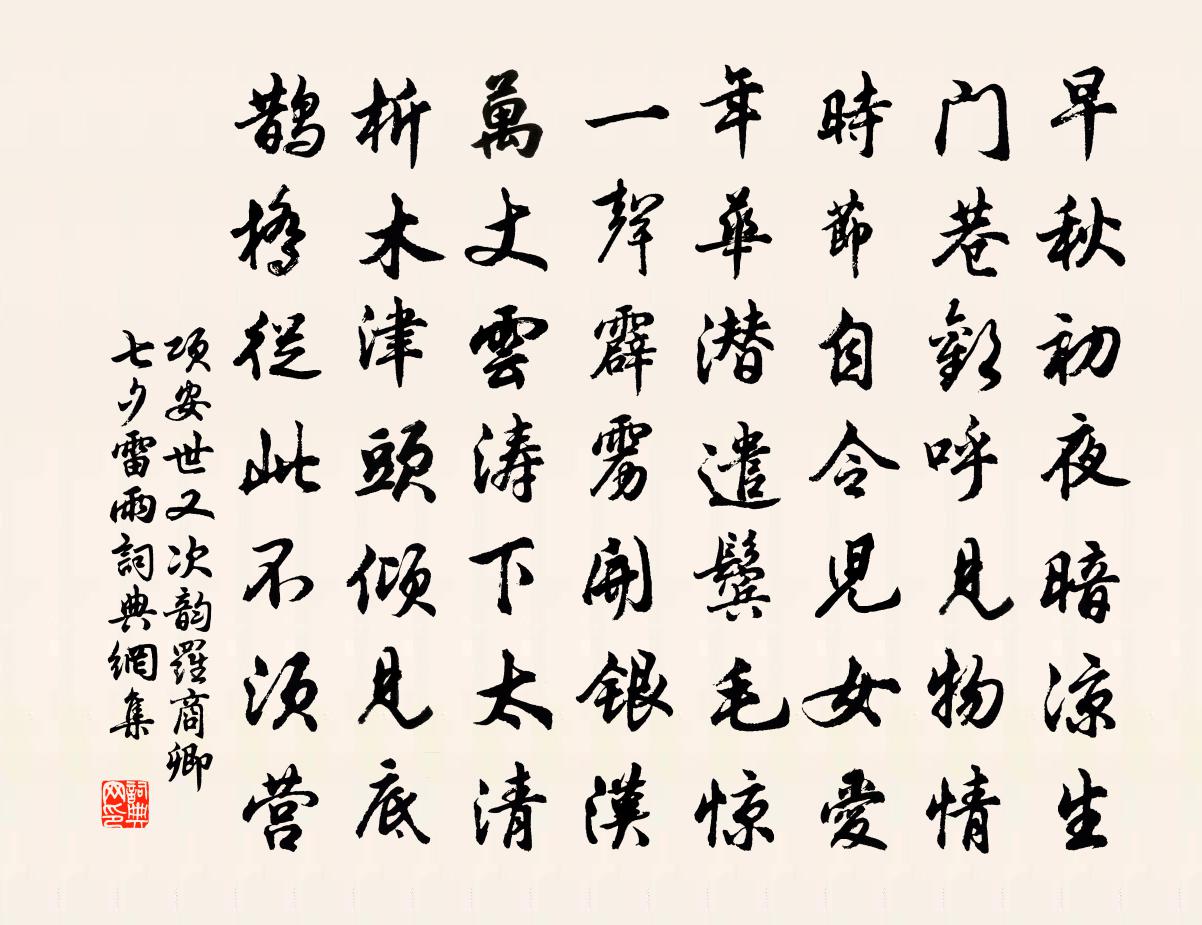 早秋初夜暗涼生
门巷歡呼見物情
時節自令兒女愛
年華潜遣鬢毛惊
一聲霹靂開銀漢
萬丈雲涛下太清
析木津頭倾見底
鹊橋從此不须营
项安世又次韵羅商卿
七夕雷雨詞典網集
詞典
网印